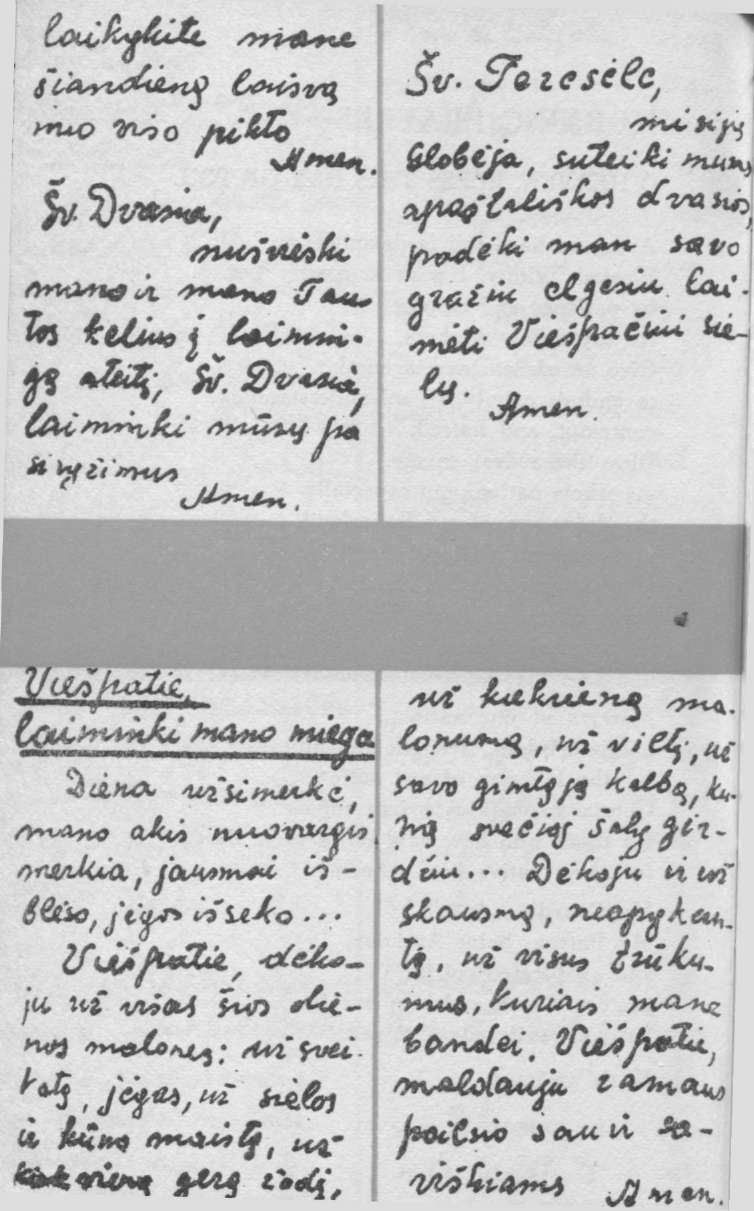 laikykite mane
šiandieną laisvą
nuo viso pikto
Amen.
Šv. Dvasia,
nušvieski
mano ir mano Tau-
tos kelius į laimin-
gą ateitį, Šv. Dvasia,
laimink mūsų pa
siryžimus
Amen.
Šv. Teresėle,
misijų
Globėja, suteiki mums
apaštališkos dvasios,
padėki man savo
gražiu elgesiu lai-
mėti Viešpačiui sie-
lų.
Amen.
Viešpatie,
laiminki mano miegą
Diena užsimerkė,
mano akis nuovargis
merkia, jausmai iš-
blėso, jėgos išseko...
Viešpatie, dėko-
ju už visas šios die-
nos malones: už svei-
katą, jėgas, už sielos
ir kūno maistą, už
kiekvieną gerą žodį,
už kiekvieną ma-
lonumą, už viltį, už
savo gimtąją kalbą, ku-
rią svečioj šaly gir-
džiu... Dėkoju ir už
skausmą, neapykan-
tą, už visus trūku-
mus, kuriais mane
bandei. Viešpatie,
maldauju ramaus
poilsio sau ir sa-
viškiams Amen.